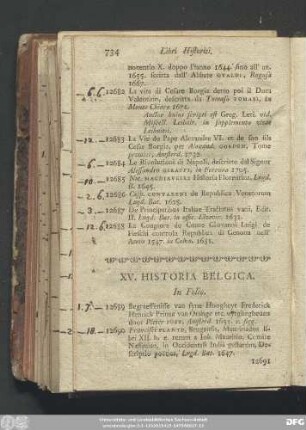 734 Libri Historici.
nocentio X. doppo l'anno 1644. fino all' an.
1655. scritta dell' Abbate GUALDI, Ragusa
1667.
6.6. 12682 La vita di Cesare Borgia detto poi il Duca
Valentino, descritta da Tomaso TOMASI, in
Monte Chiaro 1671.
Author hujus scripti est Greg. Leti, vid.
in supplemento
12683 La Vie du Pape Alexandre VI. et de son fils
Cesar Borgia, par Alexand. GORDON, Tome
Amsterd. 1732.
12684 Le Rivolutioni di Napoli, descritte dal Signor
Alessandro GIRAFFI, in Ferrara 1705.
12685 Nic. MACHIAVELLI Historia Florentina, Lugd.
B. 1645.
12686 Casp. CONTARENI de Republica Venetorum
Lugd. Bat. 1626.
12687 De Principatibus Italiae Tractatus varii, Edit.
II. Lugd. Bat. in offic. Elzevir. 1631.
12688 La Congiura de Conte Giovanni Luigi de
Fieschi contro la Republica di Genova nell'
Anno 1547. in Colon. 1681.
XV. HISTORIA BELGICA.
In Folio.
1.7. 12689 Begraeffenisse van syne Hoogheyt Frederick
Henrick Prince van Orange etc.
door Pieter POST, Amsterd. 1651. c. fig.
2.-18. 12690 Francisci PLANTE, Brugensis, Mauritiados li-
bri XII. h. e. rerum a Joh. Mauritio Comite
Nassoviae, in Occidentali India gestarum, De-
scriptio poetica, Lugd. Bat. 1647.
12691